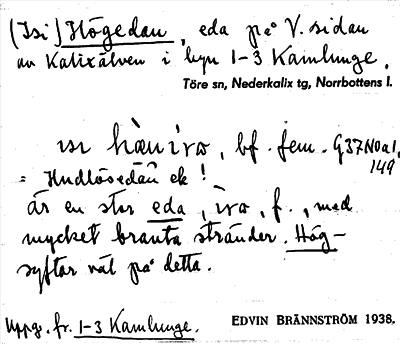 (Isi) Högedan, eda på V. sidan
av Kalixälven i byn 1-3 Kamlunge.
Töre sn, Nederkalix tg, Norrbottens l.
bf. fem. G37N0a1,
149
= Hudlösedan ek!
är en stor eda, f., med
mycket branta stränder. Hög-
syftar väl på detta.
Uppg. fr. 1-3 Kamlunge. EDVIN BRÄNNSTRÖM 1938.